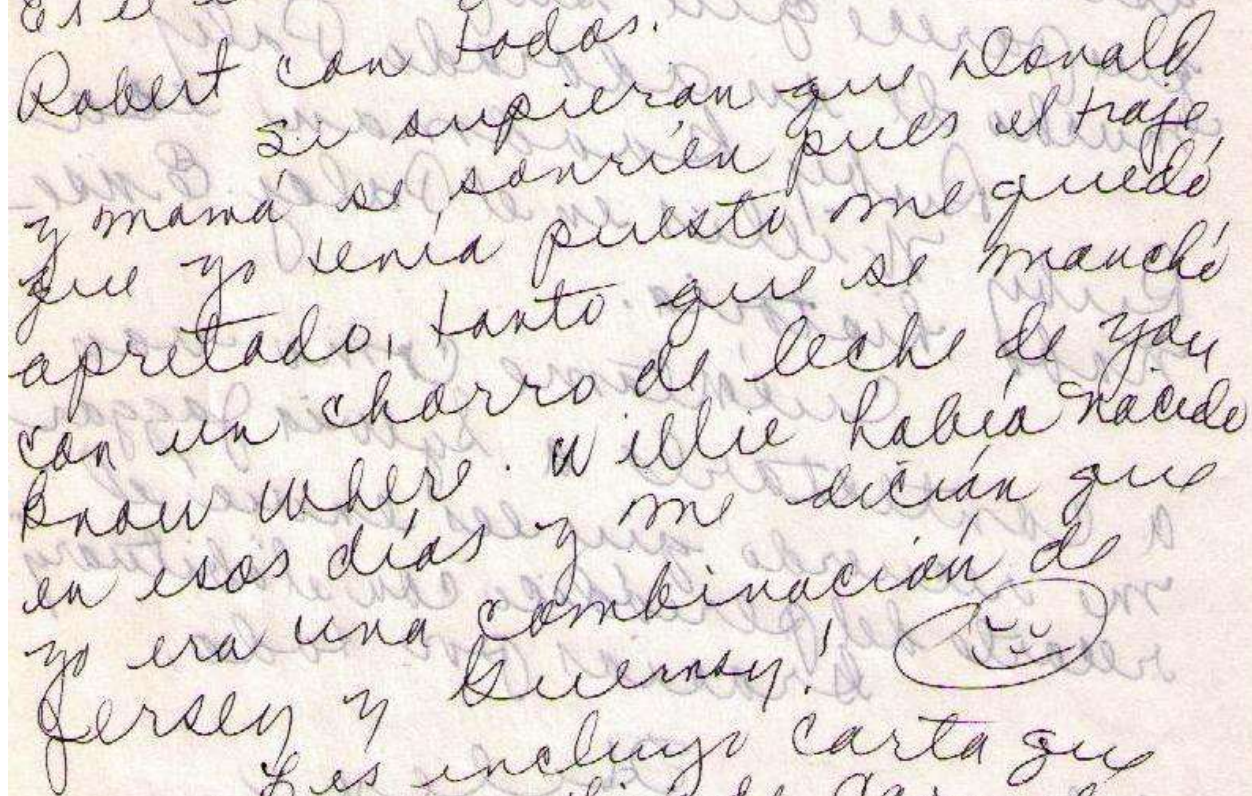 Robert con todos.
Si supieran que Donald
y mamá se sonríen pues el traje
que yo tenía puesto me quedó
apretado, tanto que se manchó
con un chorro de leche de you
know where. Willie había nacido
en esos días y me dicían que
yo era una combinación de
Jersey y Guernsy!
Les incluyo carta que